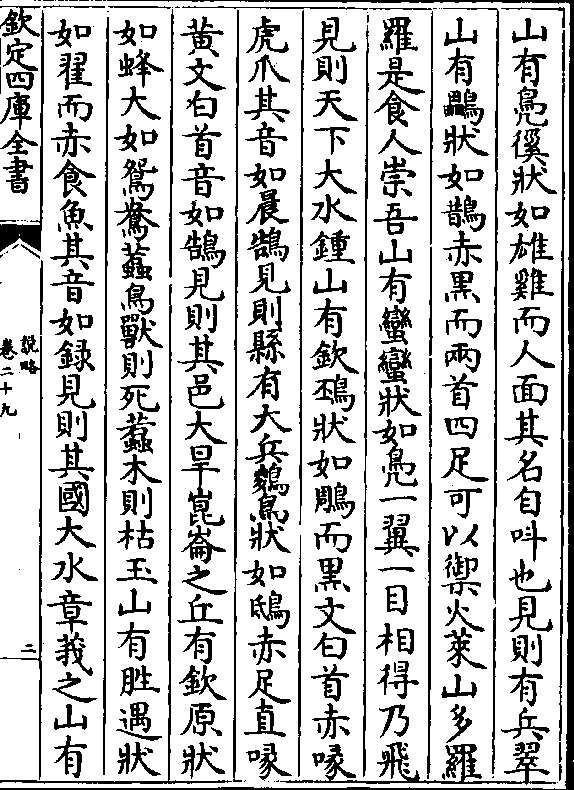 山有鳧徯狀如雄雞而人面其名自呌也見則有兵翠
山有鸓狀如鵲赤黒而兩首四足可以禦火萊山多羅
羅是食人崇吾山有蠻蠻狀如鳧一翼一目相得乃飛
見則天下大水鍾山有欽䲹狀如鵰而黒文白首赤喙
虎爪其音如晨鵠見則縣有大兵鵕鳥狀如鴟赤足直喙
黄文白首音如鵠見則其邑大旱崑崙之丘有欽原狀
如蜂大如鴛鴦蠚鳥獸則死蠚木則枯玉山有胜遇狀
如翟而赤食魚其音如録見則其國大水章莪之山有
欽定四庫全書
說略
卷二十九
二